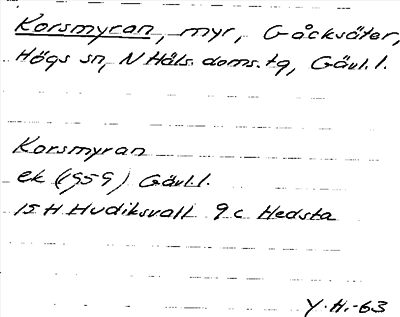 Korsmyran, myr, Gåcksäter,
Högs sn, N Häls. doms. tg, Gävl. l.
Korsmyran
ek (1959) Gävl. l.
15 H Hudiksvall 9 c Hedsta
Y. H. -63